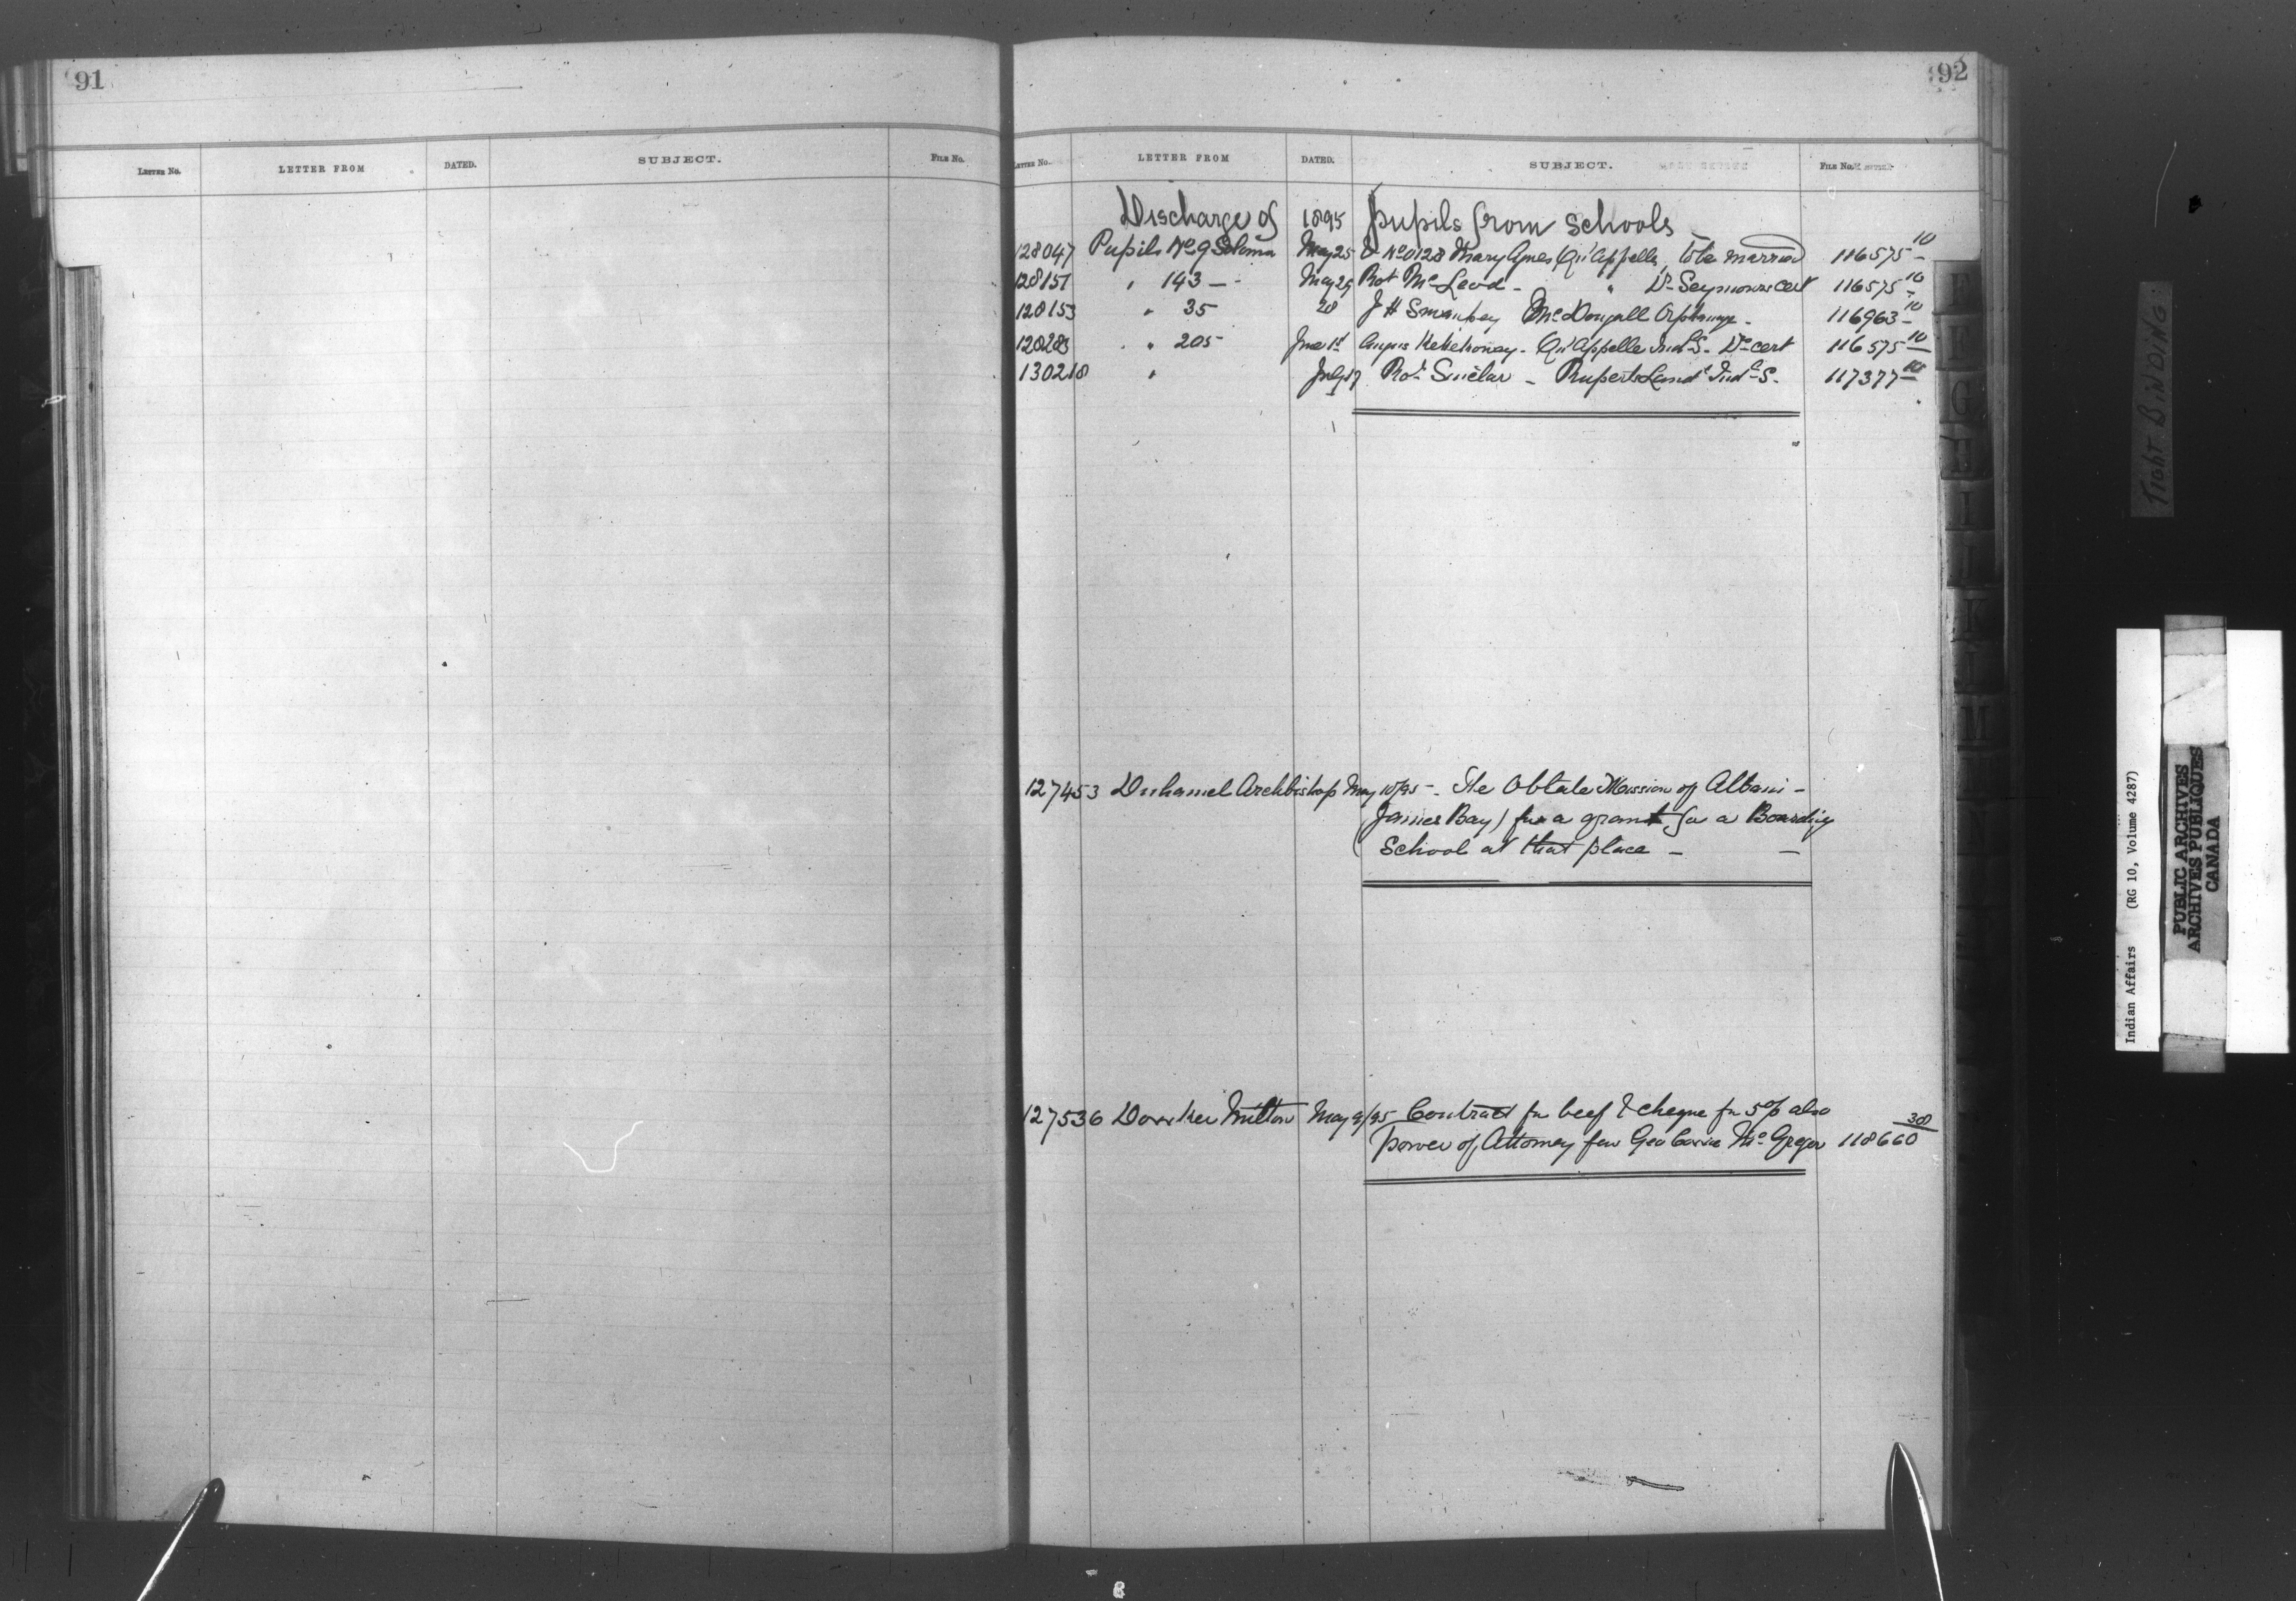 91
LETTER NO. LETTER FROM DATED. SUBJECT. FILE NO.
92
LETTER NO. LETTER FROM DATED. SUBJECT. FILE NO.
Discharge of 1895 pupils from schools
128047 Pupils No 9 May 25 & No 0128 Mary Agnes Qu'Appelle, to be married 116575-10
128151 " 143 — May 29 Rot McLeod - " Dr Seymours cert 116575-10
128153 " 35 28 J H McDougall Orphanage - 116963-10
128283 " 205 June 1st Angus Qu'Appelle Indl S. Dr cert 116575-10
130218 " July 17 Rot Sinclar - Ruperts Land Indl S. 117377-10
127453 Duhamel Archbishop May 10/95 -. The Oblate Mission of Albani -
(James Bay) for a grant for a Boarding
School at that place - -
127536 Milton May 9/95 Contract for beef & cheque for 5% also
power of Attorney from Geo McGregor 118660-30
Tight BINDING
Indian Affairs (RG 10, Volume 4287)
PUBLIC ARCHIVES
ARCHIVES PUBLIQUES
CANADA